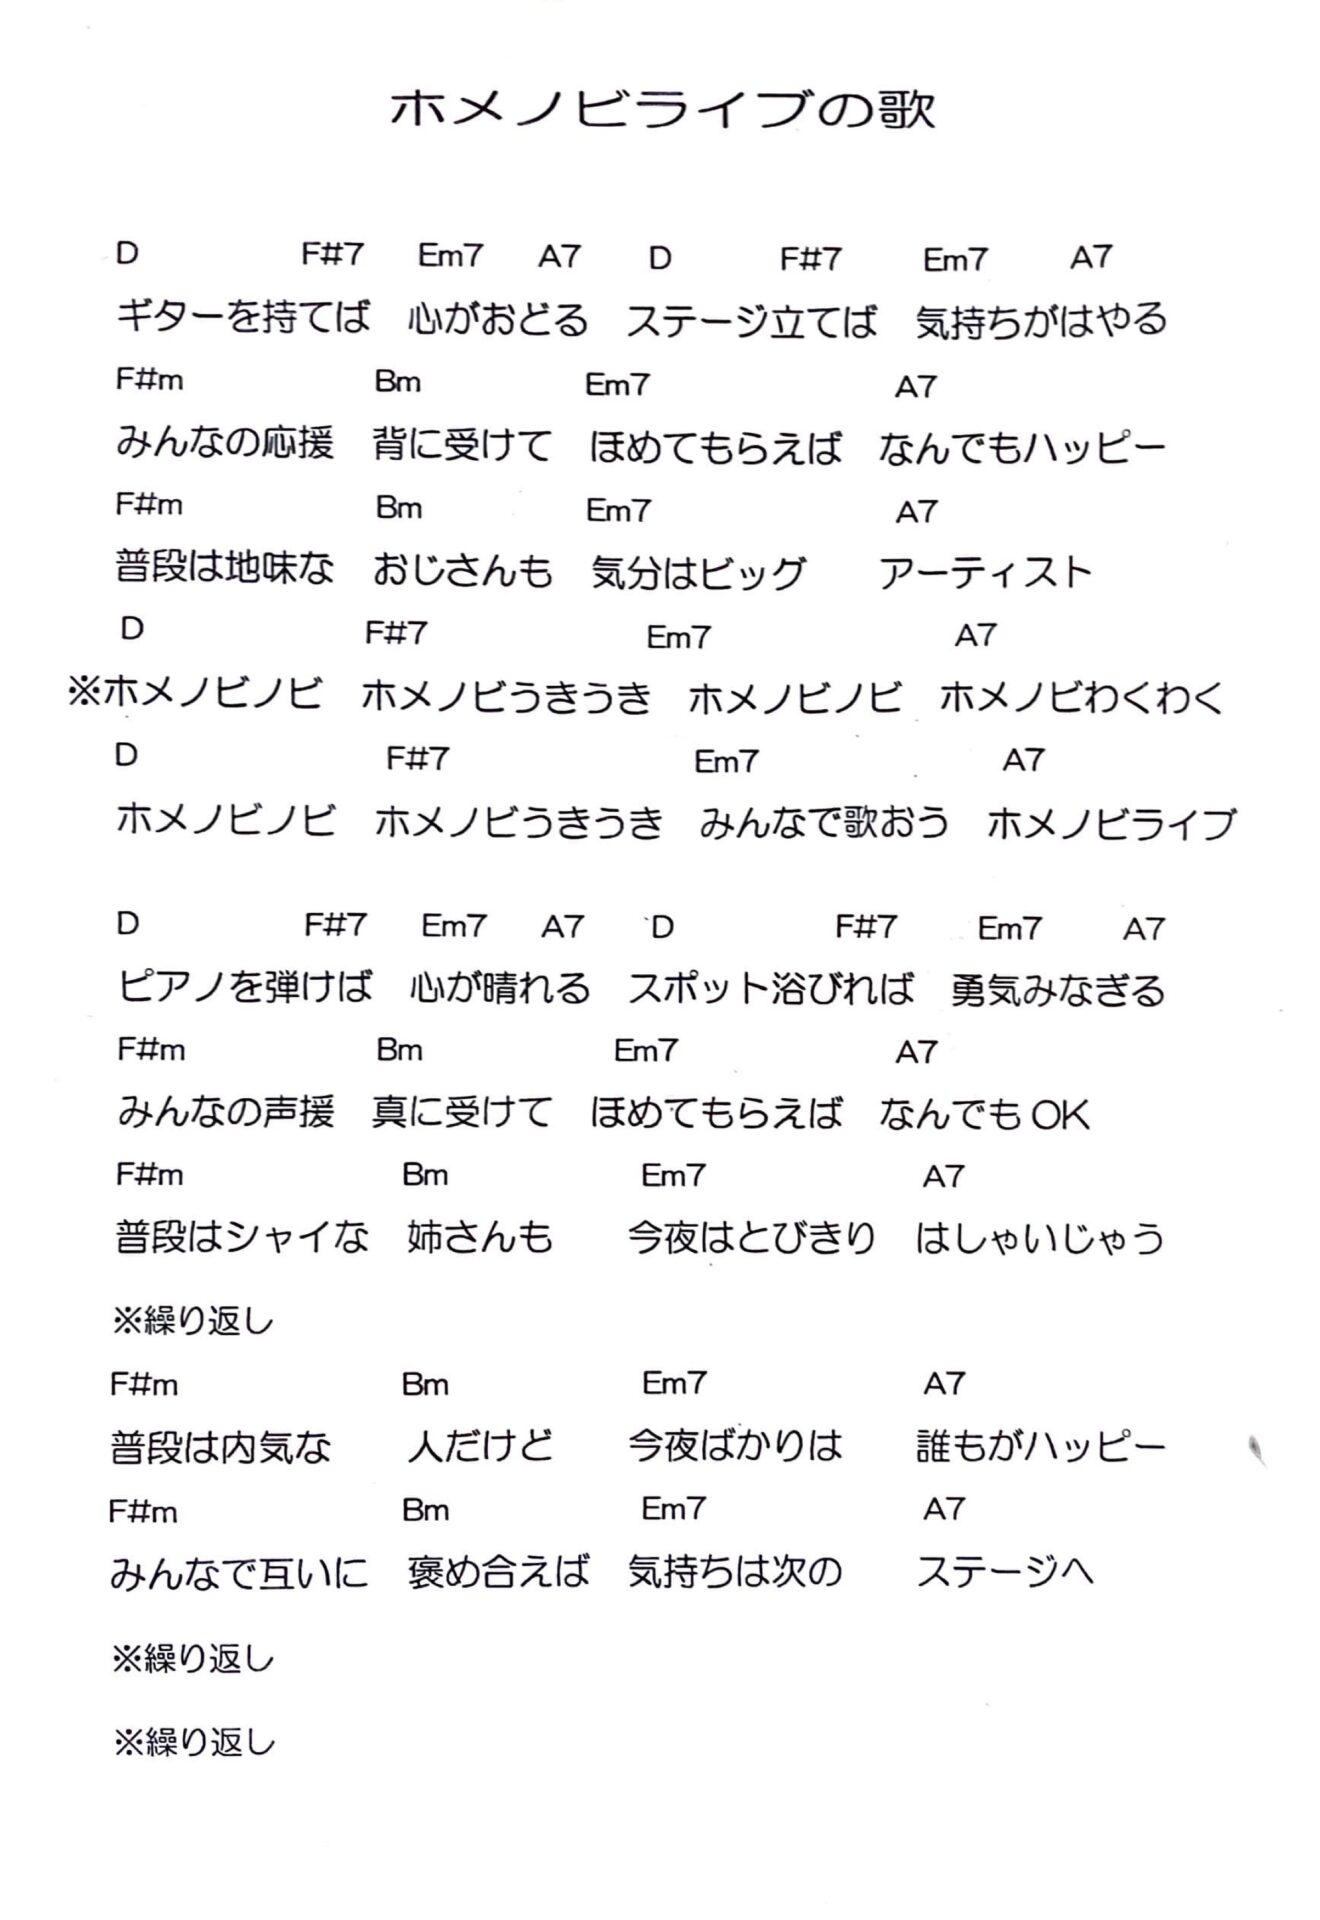 ホメノビライブの歌
D F#7 Em7 A7 D F#7 Em7 A7
ギターを持てば 心がおどる ステージ立てば 気持ちがはやる
F#m Bm Em7 A7
みんなの応援 背に受けて ほめてもらえば なんでもハッピー
F#m Bm Em7 A7
普段は地味な おじさんも 気分はビッグ アーティスト
D F#7 Em7 A7
※ホメノビノビ ホメノビうきうき ホメノビノビ ホメノビわくわく
D F#7 Em7 A7
ホメノビノビ ホメノビうきうき みんなで歌おう ホメノビライブ
D F#7 Em7 A7 D F#7 Em7 A7
ピアノを弾けば 心が晴れる スポット浴びれば 勇気みなぎる
F#m Bm Em7 A7
みんなの声援 真に受けて ほめてもらえば なんでもOK
F#m Bm Em7 A7
普段はシャイな 姉さんも 今夜はとびきり はしゃいじゃう
※繰り返し
F#m Bm Em7 A7
普段は内気な 人だけど 今夜ばかりは 誰もがハッピー
F#m Bm Em7 A7
みんなで互いに 褒め合えば 気持ちは次の ステージへ
※繰り返し
※繰り返し